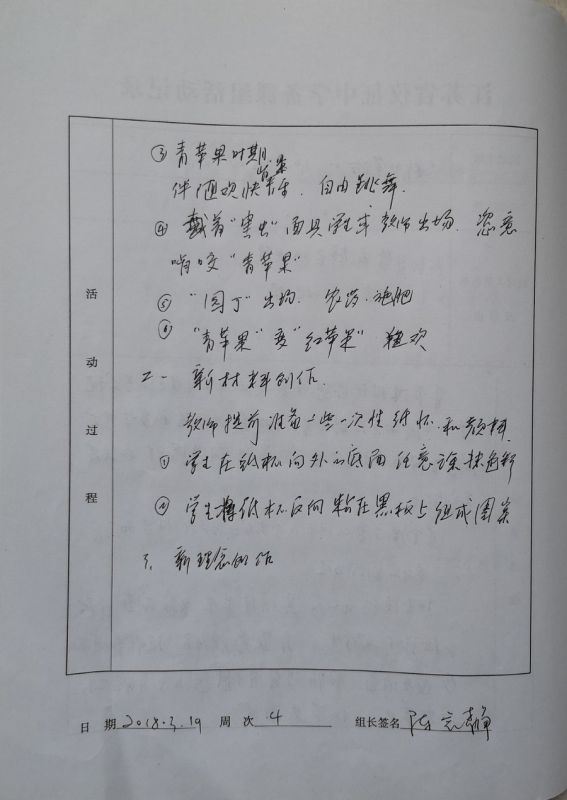 ③ 青苹果时期.
伴随欢快音乐. 自由跳舞.
④ 戴着“害虫”面具学生或教师出场. 恣意
啃咬“青苹果”
⑤ “园丁”出场. 农药. 施肥
⑥ “青苹果”变“红苹果” 狂欢
二、新材料创作.
教师提前准备一些一次性纸杯. 和颜料.
① 学生在纸杯向外的底面任意涂抹色彩
② 学生将纸杯反向粘在黑板上组成图案
3、新理念创作
活动过程
日 期 2018.3.19 周 次 4 组长签名 陈